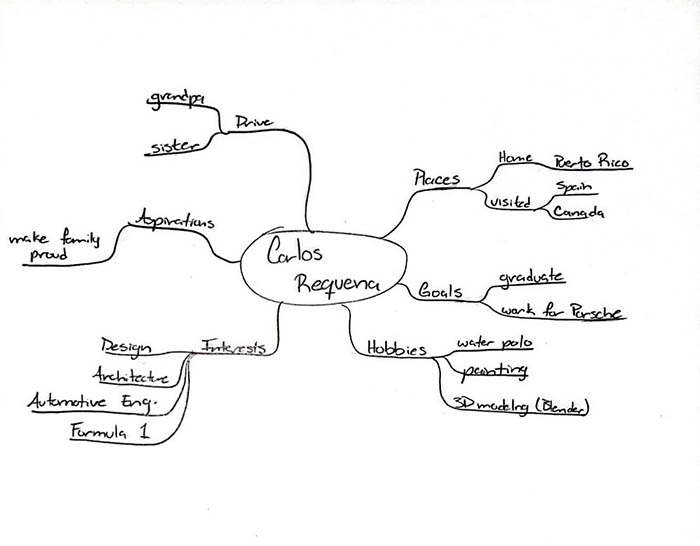 Carlos
Requena
Drive
grandpa
sister
Aspirations
make family
proud
Interests
Design
Architecture
Automotive Eng.
Formula 1
Places
Home
Puerto Rico
visited
Spain
Canada
Goals
graduate
work for Porsche
Hobbies
water polo
painting
3D modelng (Blender)